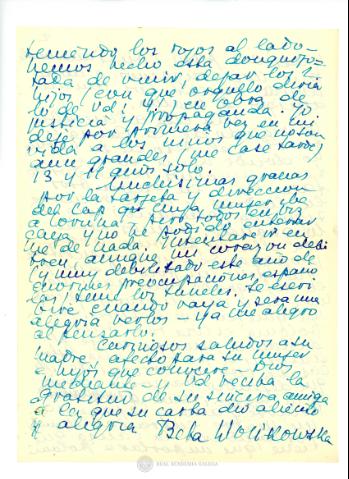 teniendo los rojos al lado-
hemos hecho esta donquijo-
tada de venir, dejar los 2
hijos (con que orgullo diria
lo de Vd! y) en obra de
justicia y propaganda. Yo
deje por primera vez en mi
vida a los niños que no son
aun grandes, (me case tarde)
13 y 11 años solo.
Muchisimas gracias
por la tarjeta y direccion
del Cap. mujer
a Coruña
caya y no he podido enterar
me de nada. Intentare ir en
tren, aunque mi corazon debil
(y muy debilitado este año de
enormes preocupaciones, españo
las) teme los tuneles. Le escri
bire cuando vaya y sera una
alegria verlos - ya me alegro
al pensarlo.
Cariñosos saludos a su
madre, afecto para su mujer
e hijos que conocere - Dios
mediante - y Vd reciba la
gratitud de su sincera amiga
a la que su carta dio aliento
y alegria Bela Wolikowska
REAL ACADEMIA GALEGA